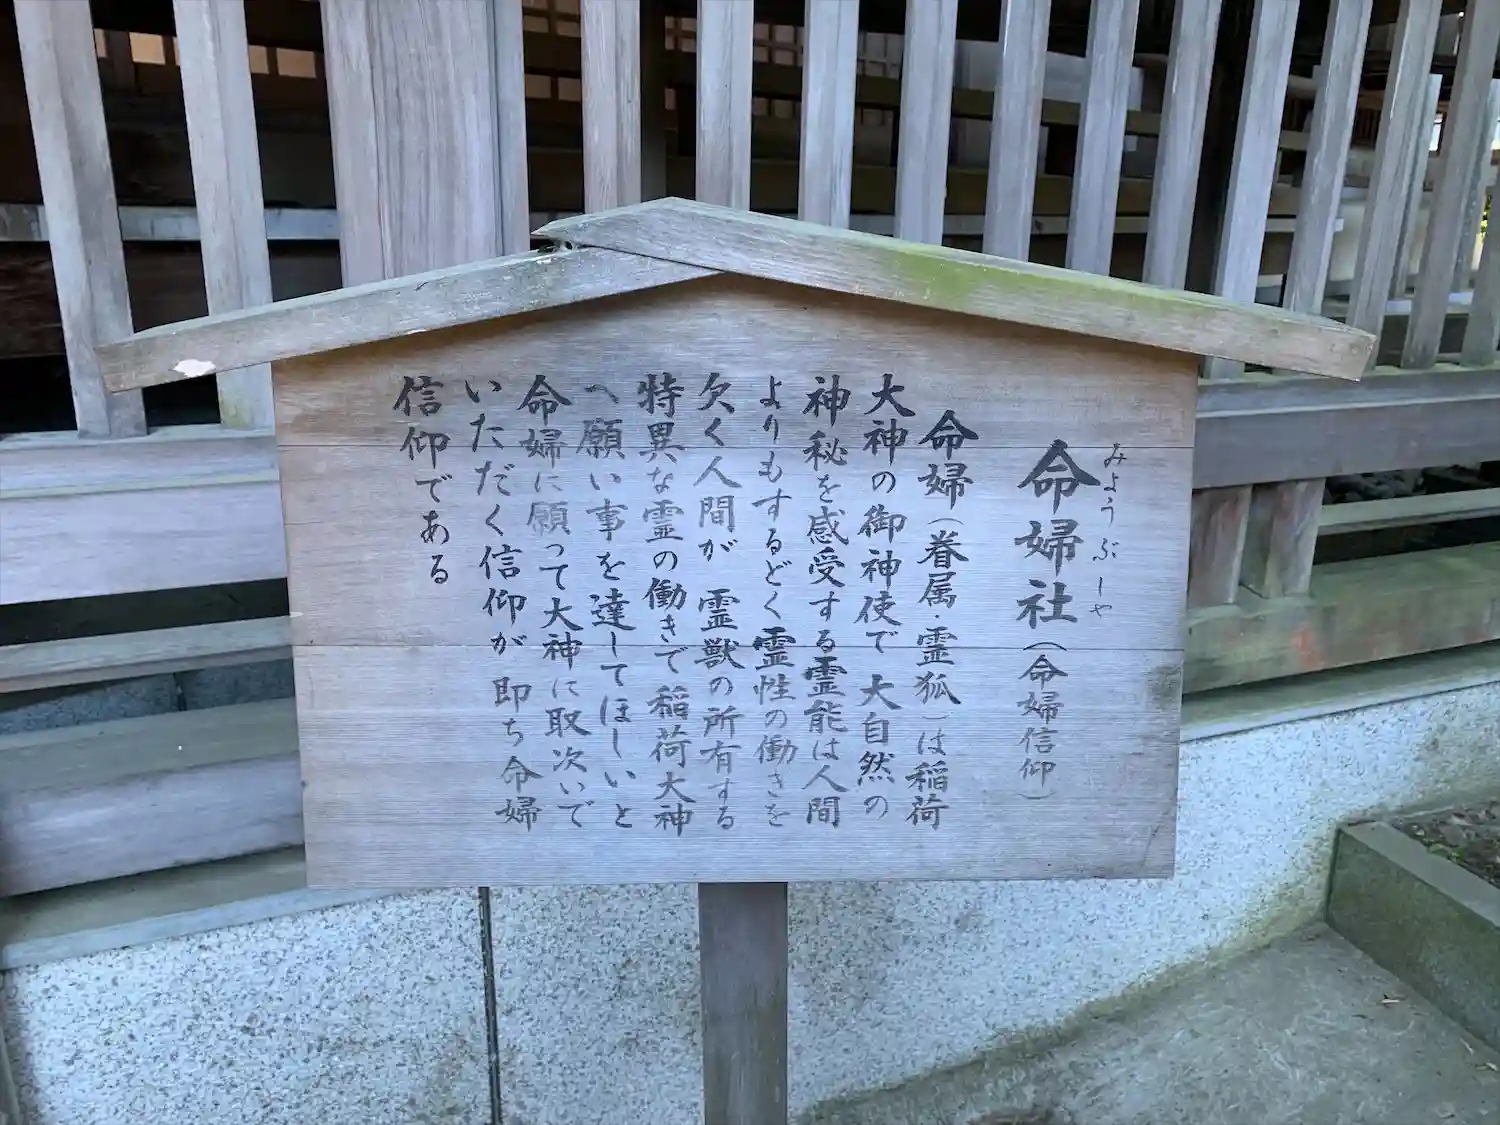 みようぶしや
命婦社（命婦信仰）
命婦（眷属・霊狐）は稲荷
大神の御神使で 大自然の
神秘を感受する霊能は人間
よりもするどく霊性の働きを
欠く人間が 霊獣の所有する
特異な霊の働きで稲荷大神
へ願い事を達してほしいと
命婦に願って大神に取次いで
いただく信仰が 即ち命婦
信仰である